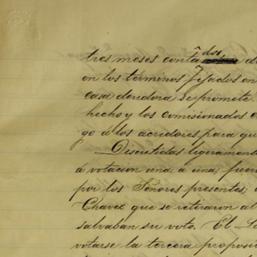 tres meses contados d
en los terminos fijados en
casa deudora se promete
hecho y los comisionados
go a los acridores para qu
Descutidas ligeramen
á votacion una a una fuer
por los Señores presentes,
Chavez que se retiraron al
salvaban su voto. El Se
votarse la tercera proposi